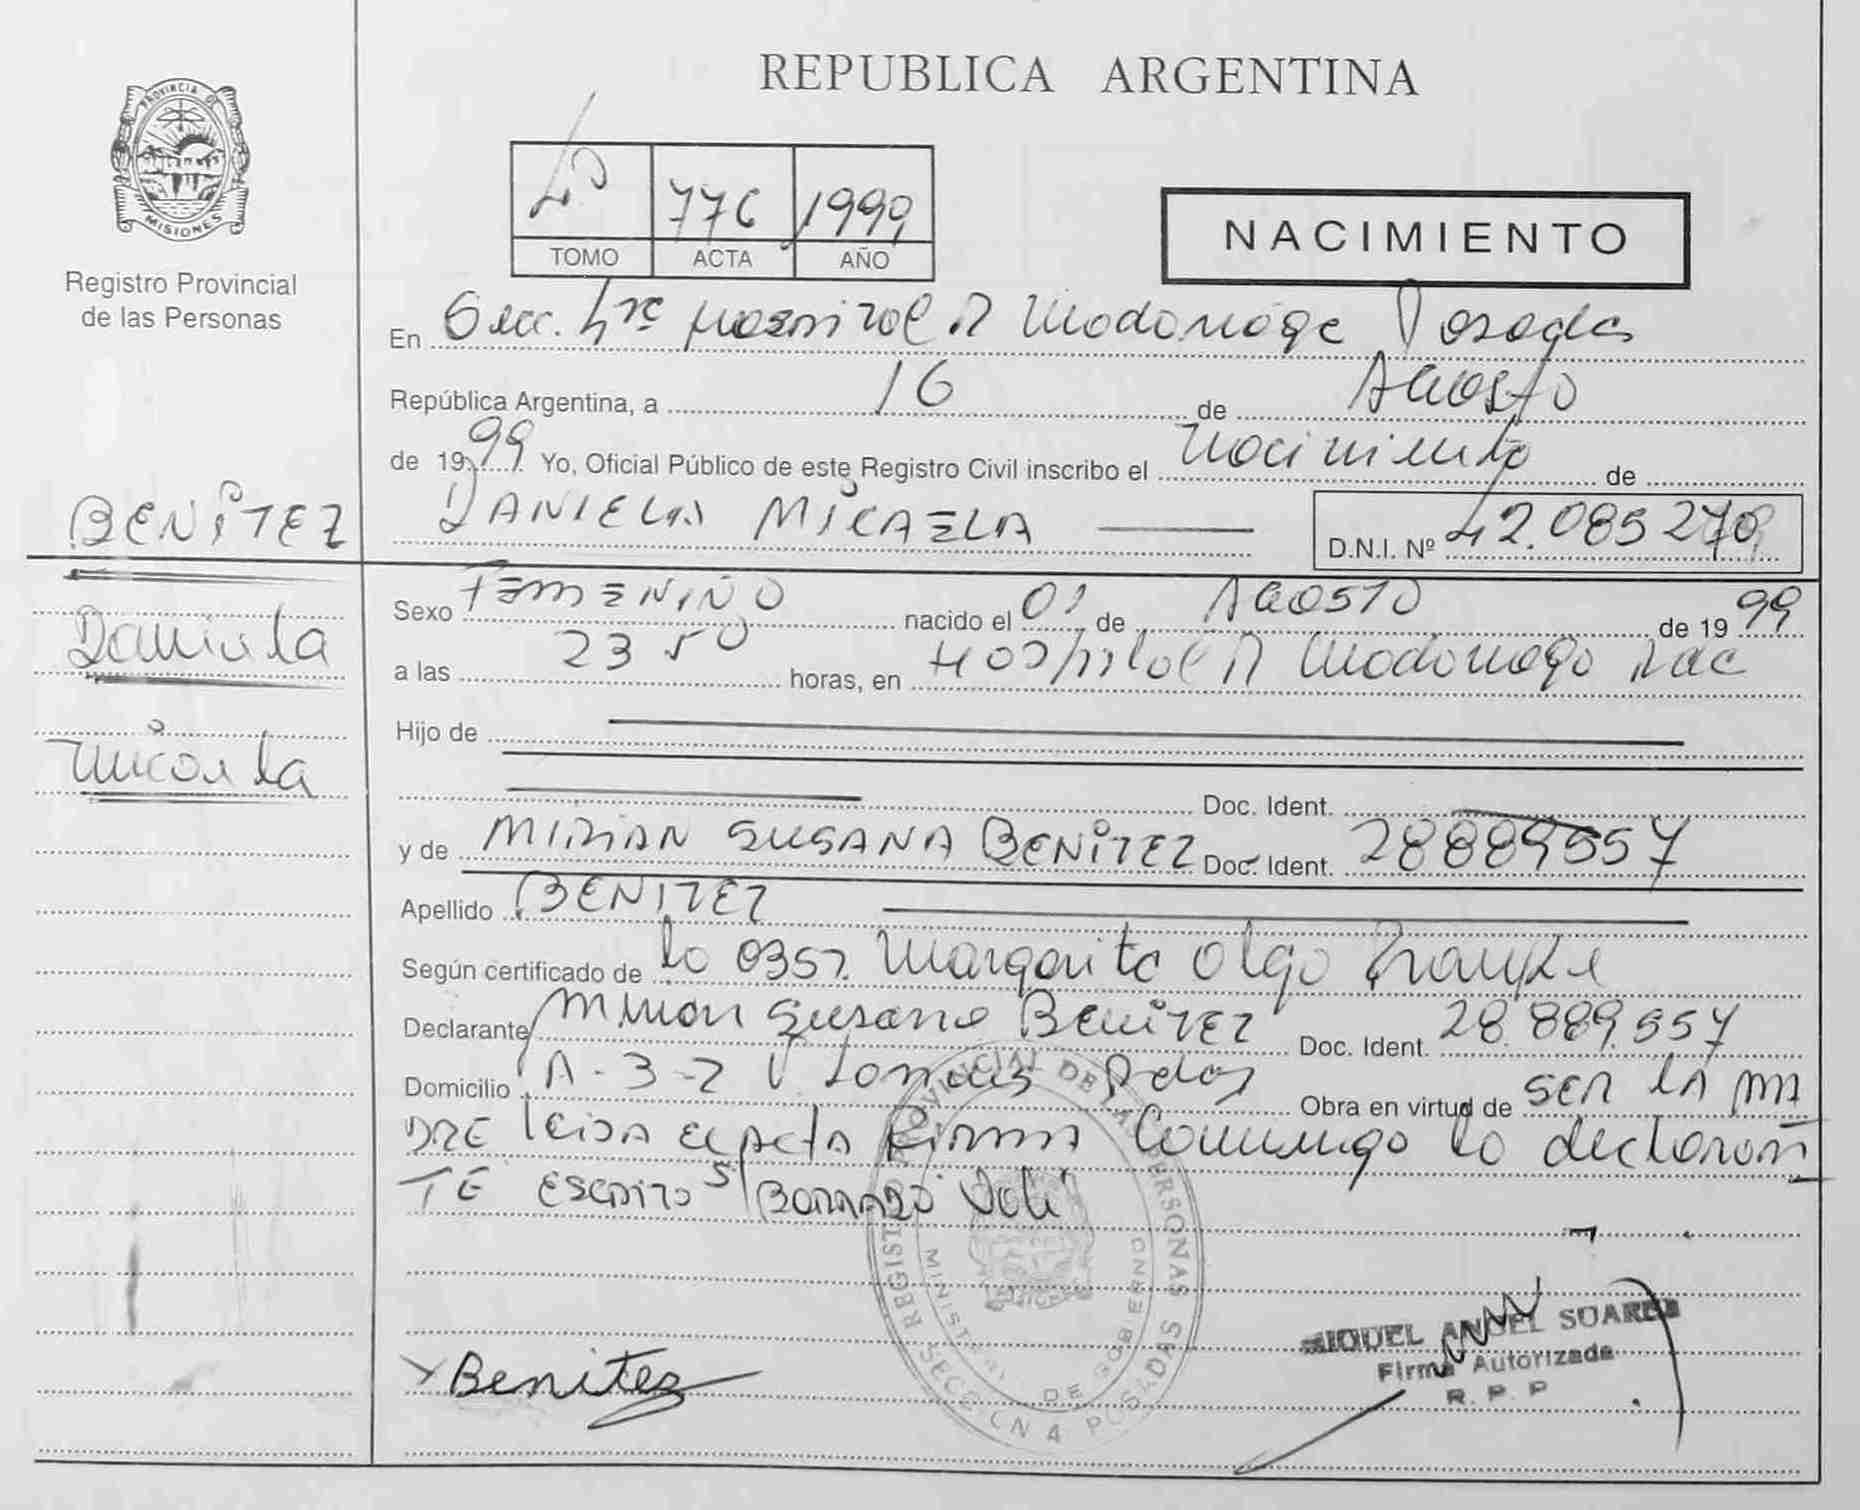 PROVINCIA DE
MISIONES
Registro Provincial
de las Personas
REPUBLICA ARGENTINA
4º 776 1999
TOMO ACTA AÑO
NACIMIENTO
En Secc. 4ta Hospital R Madariaga Posadas
República Argentina, a 16 de Agosto
de 1999 Yo, Oficial Público de este Registro Civil inscribo el Nacimiento de
BENÍTEZ
DANIELA MICAELA
D.N.I. Nº 42.085.270
Daniela
Micaela
Sexo FEMENINO nacido el 01 de AGOSTO de 1999
a las 23 50 horas, en Hospital R Madariaga
Hijo de
Doc. Ident.
y de MIRIAN SUSANA BENÍTEZ Doc. Ident. 28889557
Apellido BENITEZ
Según certificado de la Obst. Margarita Olga
Declarante Mirian Susana BENÍTEZ Doc. Ident. 28.889.557
Domicilio A-3-2 Pdas Obra en virtud de SER LA MA
DRE leida el ACTA FIRMA Conmigo la declaran
TE Escrito s/ Borrado Vale
REGISTRO PROVINCIAL DE LAS PERSONAS
MINISTERIO DE GOBIERNO
SECCION 4 POSADAS
Benitez
MIGUEL ANGEL SUAREZ
Firma Autorizada
R. P. P